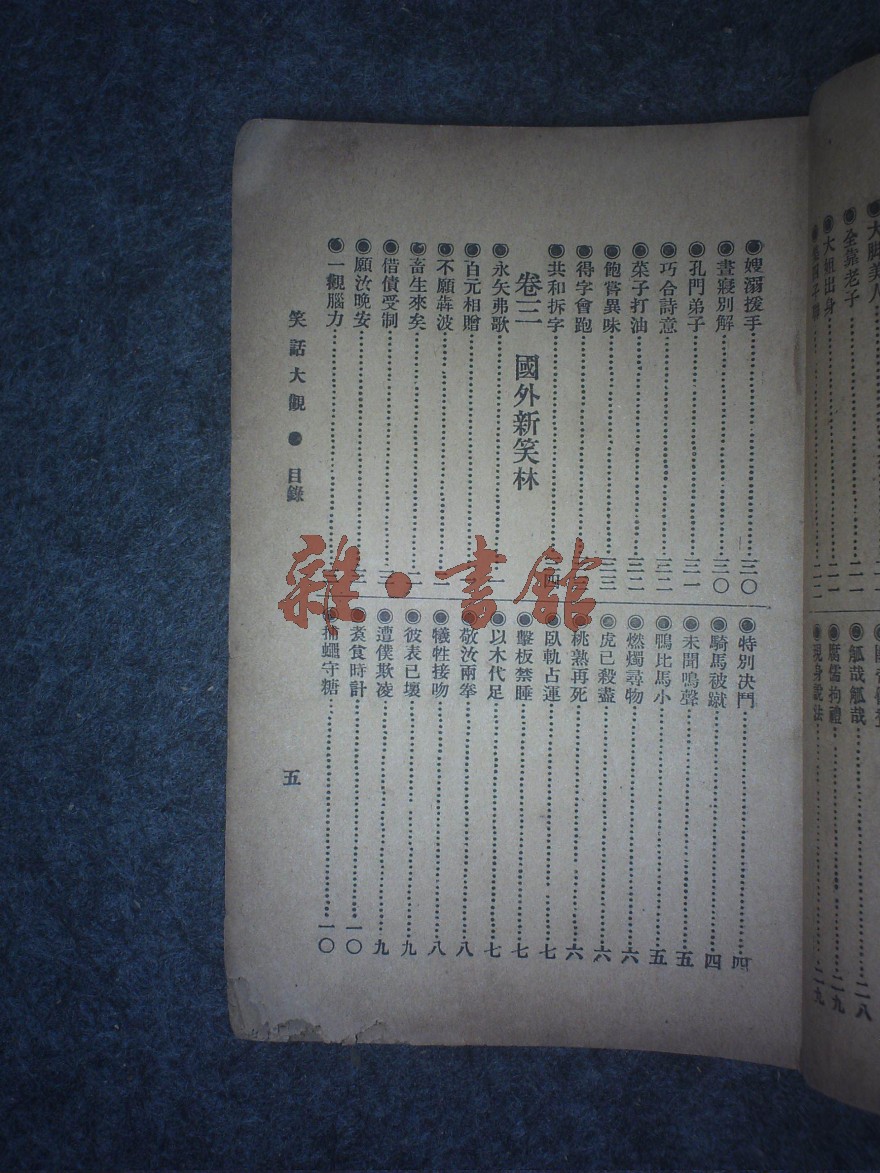 大脚美人
全靠老子
大姐出身
觚哉觚哉
二八
腐儒拘禮
二九
現身說法
二九
嫂溺援手 三〇
晝寢別解 三〇
孔門弟子 三一
巧合詩意 三二
菜子打油 三二
飽嘗異味 三三
得字會跑
共和拆字 三四
卷三 國外新笑林
永矢弗歌
百元相贈
不願犇波
畜生來矣
借債受制
願汝晚安
一觀腦力
特別决鬥 四
騎馬被蹴 四
未聞鳴聲 五
鴨比馬小 五
燃燭尋物 六
虎已殺盡 六
桃熟再死 六
臥軌占運 七
擊板禁睡 七
以木代足 七
敬汝兩拳 八
犧牲接吻 八
彼表已壞 九
遭僕欺凌 九
煑食時計 一〇
捕蠅守糖 一〇
笑話大觀 目錄
五
雜·書館